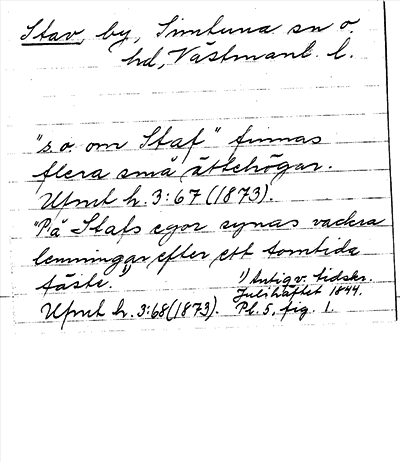 Stav, by, Simtuna sn o.
hd, Västmanl. l.
"s.o. om Staf" finnas
flera små ättehögar.
Ufmt h. 3:67 (1873).
"På Stafs egor synas vackra
lemningar efter ett forntida
fäste." 1)
1) Antiqv. tidskr.
Julihäftet 1844.
Ufmt h. 3:68 (1873). Pl. 5, fig. 1.